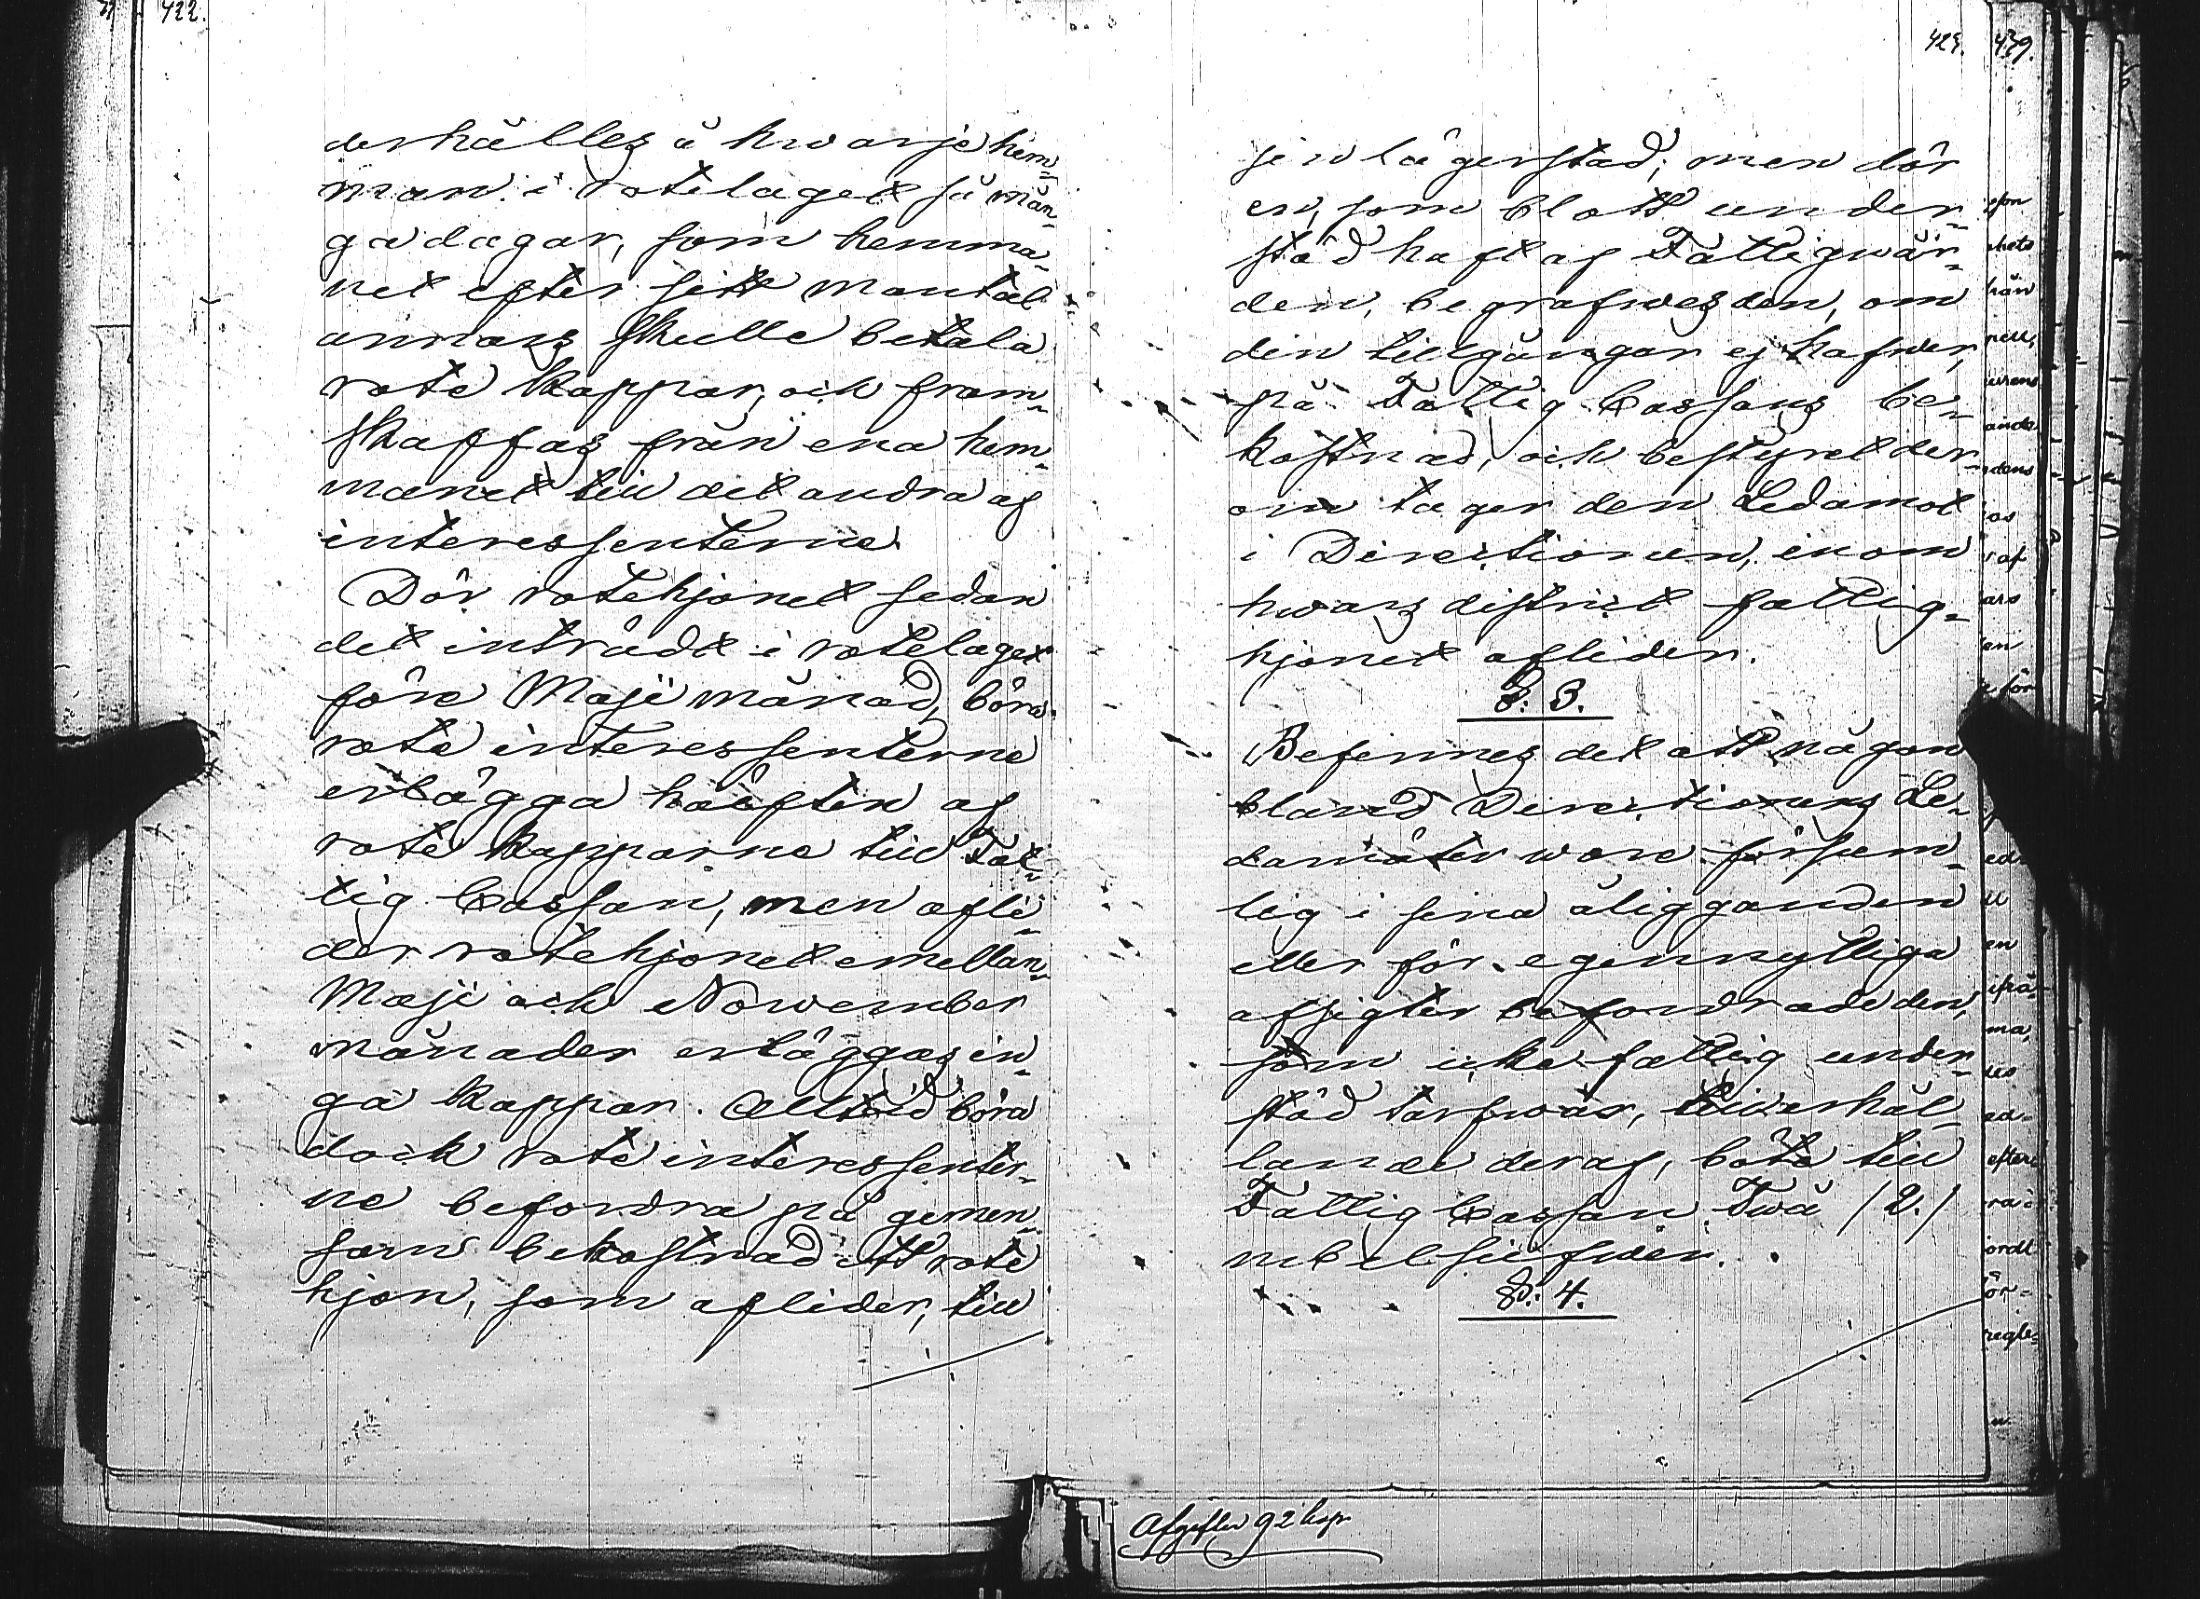 422.
derhålles å hwarje hem-
man i rotelaget så mån-
ga dagar, som hemma-
net efter sitt mantal
annars skulle betala
rote kappar, och fram-
skaffas från ena hem-
manet till det andra af
interessenterne.
Dör rotehjonet sedan
det inträdt i rotelaget
före Maji månad, böra
rote interessenterne
erlägga hälften af
rote kapparne till Fat-
tig Cassan, men afli-
der rotehjonet emellan
Maji och November
månader erläggas in-
ga kappar. Alltid böra
dock rote interessenter-
ne befordra på gemen-
sam bekostnad ett rote
hjon, som aflider, till
423.
sin lägerstad; men dör
en, som blott under-
stöd haft af Fattigwår-
den, begrafwes den, om
den tillgångar ej hafwer,
på Fattig Cassans be-
kostnad, och bestyret der-
om tager den Ledamot
i Directionen, inom
hwars district fattig-
hjonet aflider.
§. 3.
Befinnes det att någon
bland Directionens Le-
damöter wore försum-
lig i sina åligganden
eller för egennyttiga
afsigter befordrade den,
som icke fattig under-
stöd tarfwar, till erhål-
lande deraf, böte till
Fattig Cassan Twå /2./
rub el silfwer.
§. 4.
439.
efter
ordt
regle-
Afgifter 92 kop